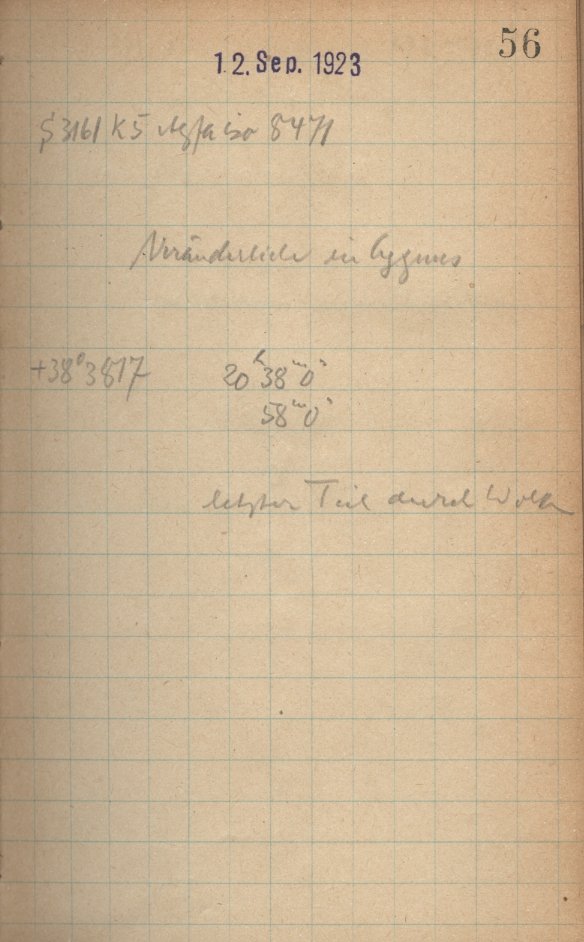 56
12. Sep. 1923
S 3161 K5 Agfa iso 8471
Veränderliche in Cygnus
+38°3817 20ʰ38ᵐ0ˢ
58ᵐ0ˢ
letzter Teil durch Wolken